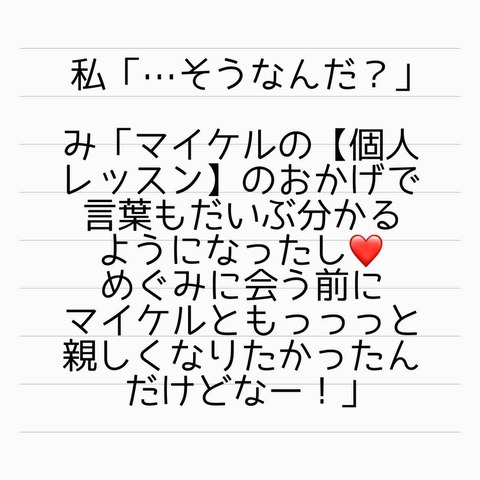 私「…そうなんだ？」
み「マイケルの【個人
レッスン】のおかげで
言葉もだいぶ分かる
ようになったし❤️
めぐみに会う前に
マイケルともっっっと
親しくなりたかったん
だけどなー！」